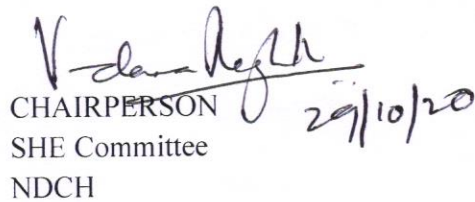 CHAIRPERSON
29/10/20
SHE Committee
NDCH